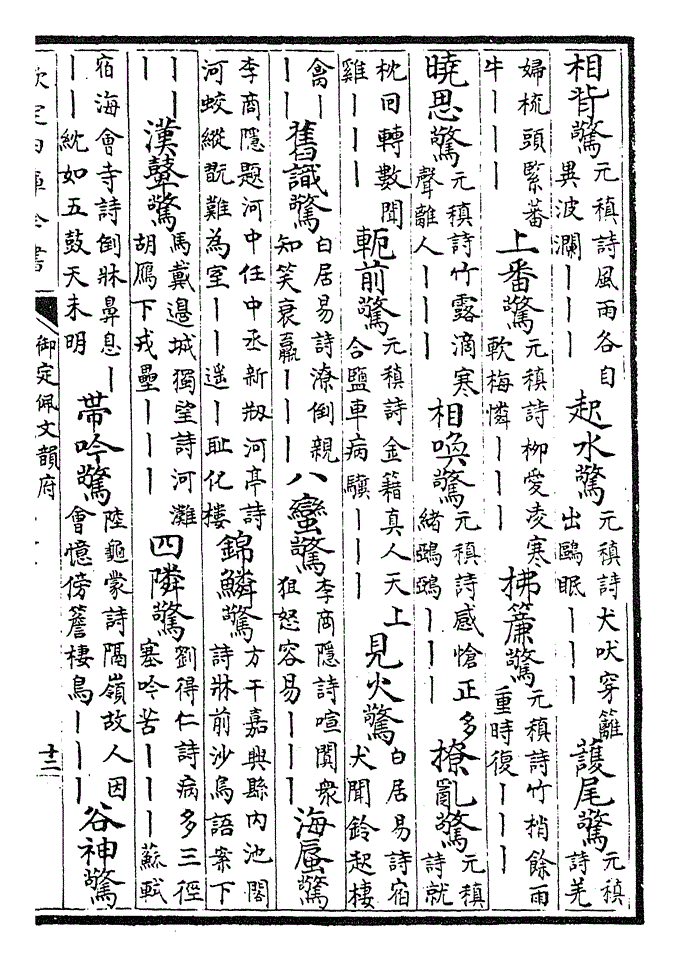 相背驚元稹詩風雨各自異波瀾｜｜｜起水驚元稹詩犬吠穿籬出鷗眠｜｜｜護尾驚元稹詩羌
婦梳頭緊蕃牛｜｜｜上番驚元稹詩柳愛凌寒軟梅憐｜｜｜拂簾驚元稹詩竹梢餘雨重時復｜｜｜
曉思驚元稹詩竹露滴寒聲離人｜｜｜相喚驚元稹詩感愴正多緒鵶鵶｜｜｜撩亂驚元稹詩就
枕回轉數聞雞｜｜｜軛前驚元稹詩金籍真人天上合鹽車病驥｜｜｜見火驚白居易詩宿犬聞鈴起棲
禽｜｜｜舊識驚白居易詩潦倒親知笑衰羸｜｜｜八蠻驚李商隱詩喧闐衆狙怒容易｜｜｜海蜃驚
李商隱題河中任中丞新剏河亭詩河蛟縱翫難為室｜｜遥｜恥化樓錦鱗驚方干嘉興縣内池閣詩牀前沙鳥語案下
｜｜｜漢鼙驚馬戴邉城獨望詩河灘胡鴈下戎壘｜｜｜四隣驚劉得仁詩病多三徑塞吟苦｜｜｜蘇軾
宿海會寺詩倒牀鼻息｜｜｜紞如五鼓天未明帶吟驚陸龜蒙詩隔嶺故人因會憶傍簷棲鳥｜｜｜谷神驚
欽定四庫全書
御定佩文韻府
十二